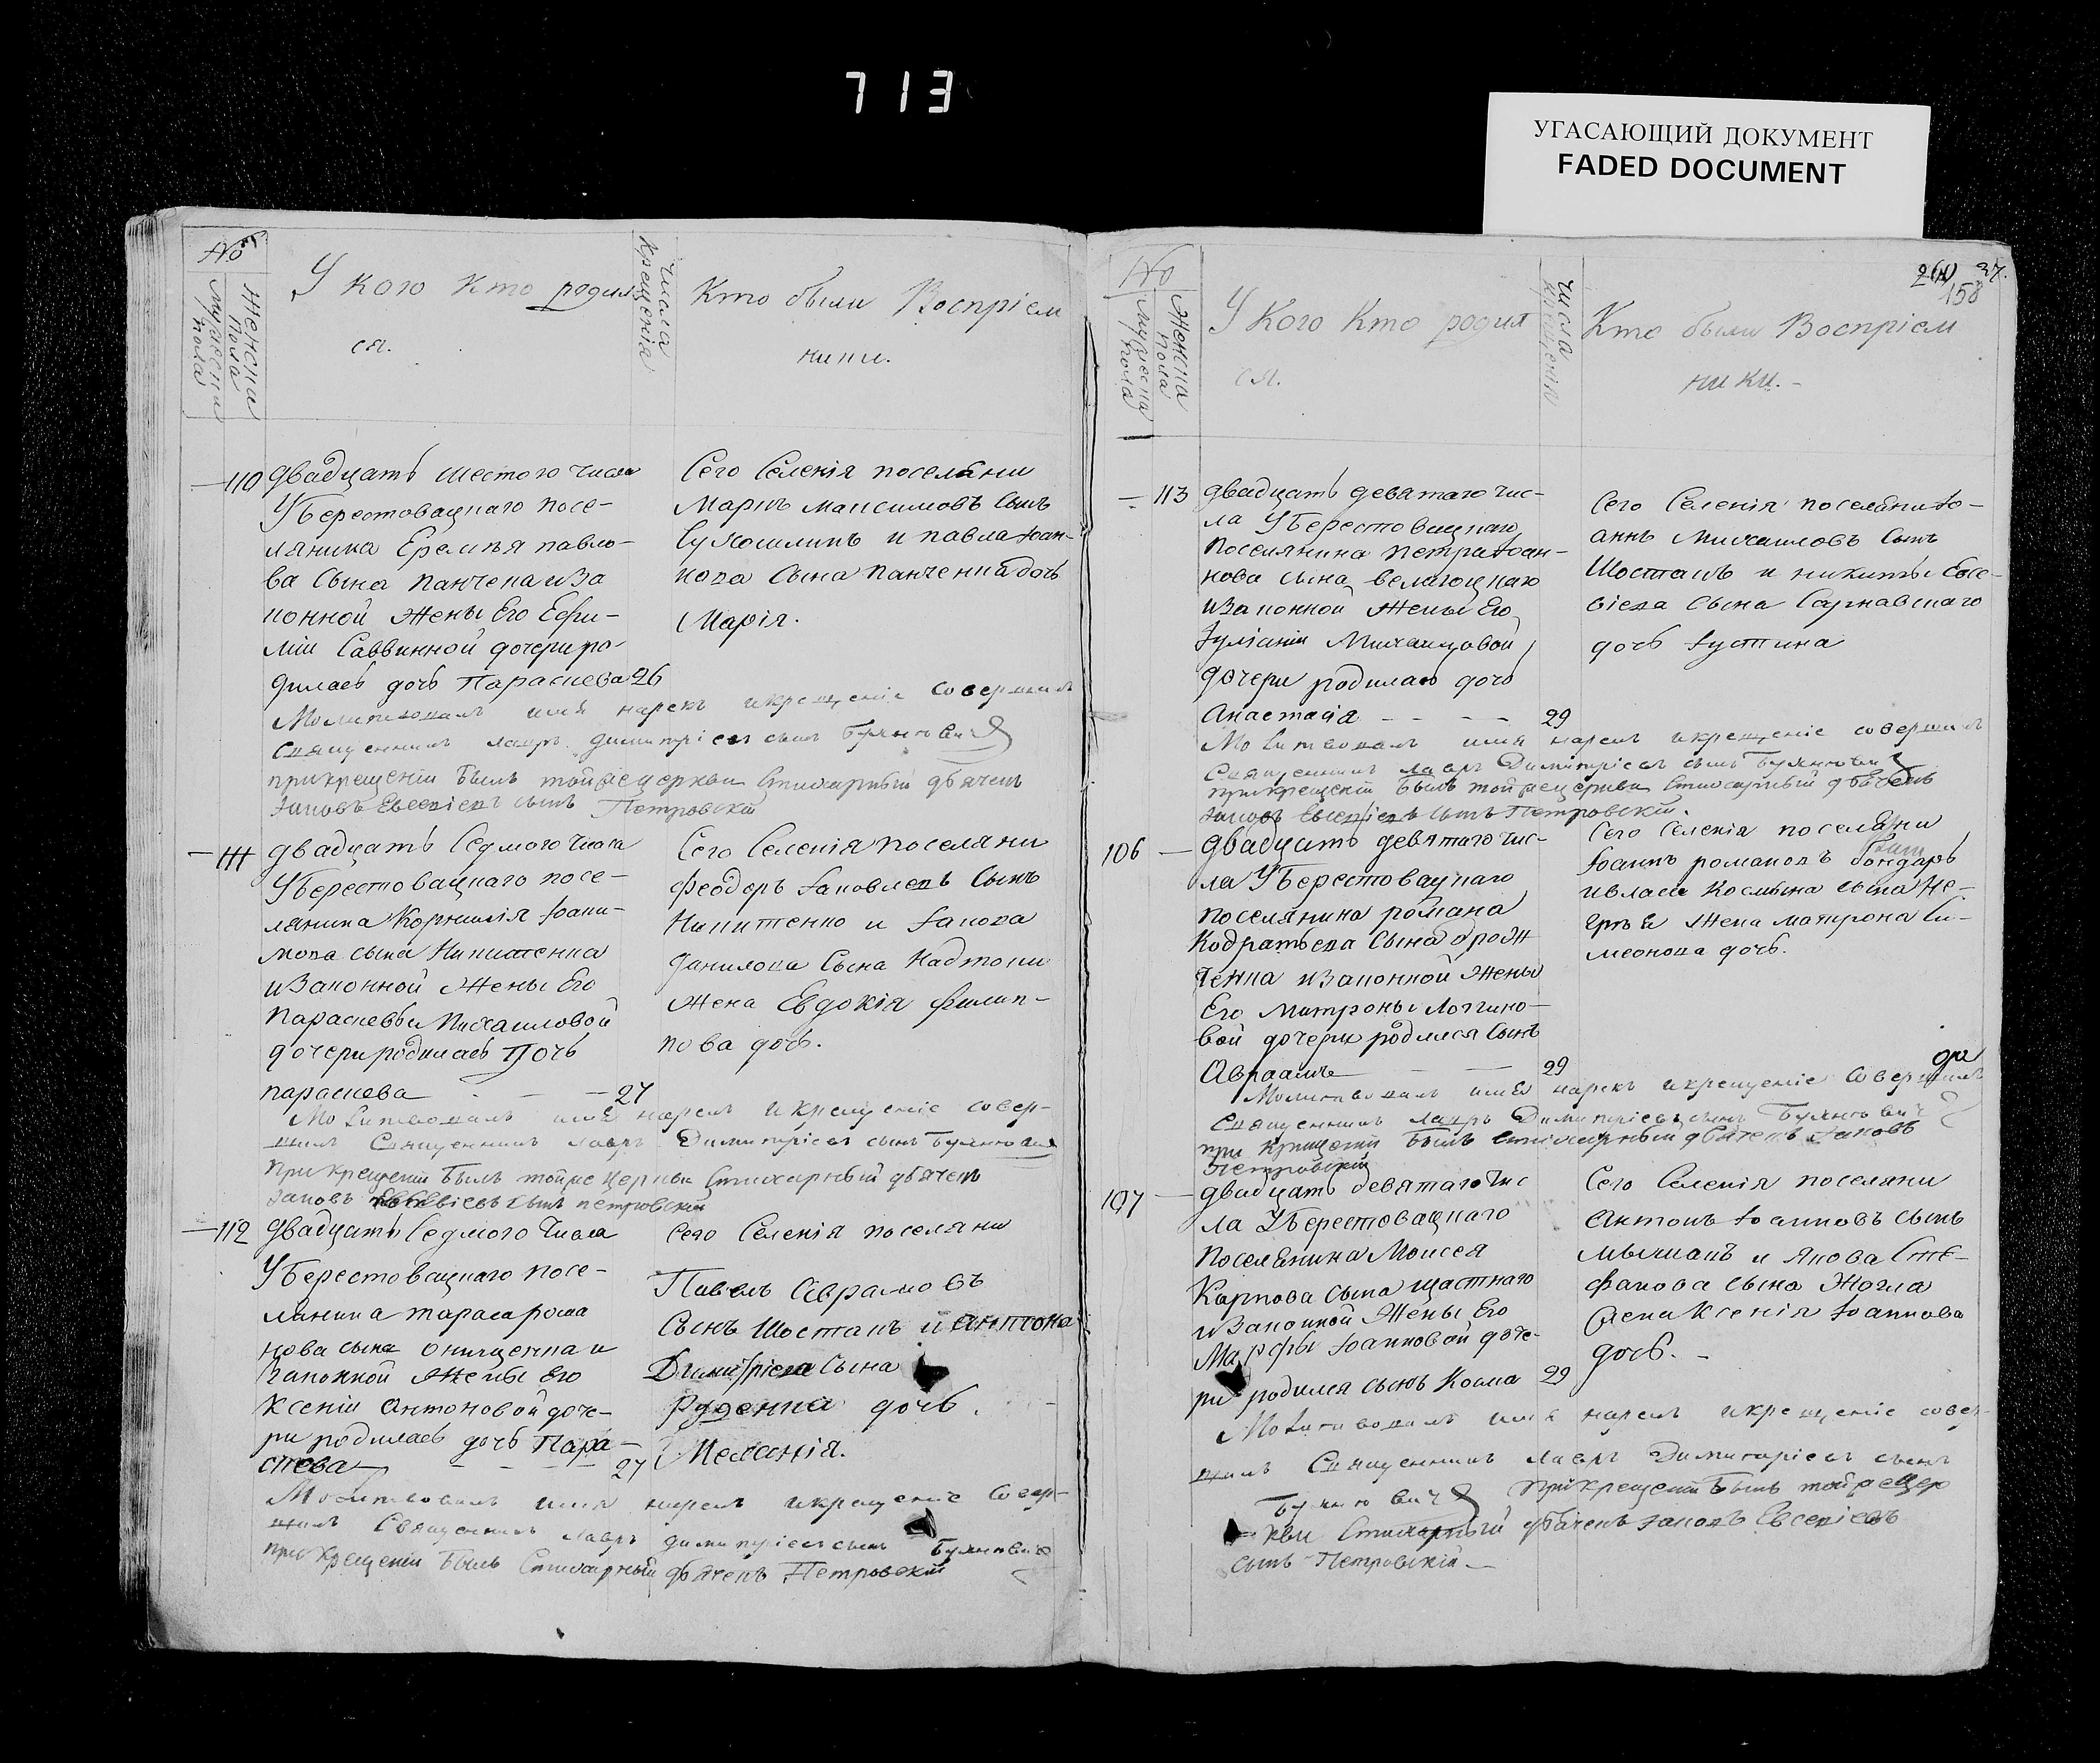 713
УГАСАЮЩИЙ ДОКУМЕНТ
FADED DOCUMENT
№
Женска Пола
Мужеска пола
У кого кто родил
ся.
Числа Крещенія
Кто были Воспріем
ники.
110
двадцать шестого числа
У Берестовацкаго посе-
ляника Еремѣя павло-
ва Сына панченка и за
конной Жены Его Ефи-
міи Саввиной дочери ро-
дилась дочь Параскева 26
Сего Селенія поселяни
Маркъ максимовъ Сынъ
и павла Іоан-
нова Сына панченка дочь
Марія.
Молитвовалъ имя нарекъ и крещеніе совершилъ
Священникъ лавръ димитріевъ сынъ
при крещеніи былъ тойже церкви Стихарный дьячекъ
Іаковъ Евсевіевъ сынъ Петровскій
111
двадцать Седмого числа
У Берестовацкаго посе-
лянина Корнилія Іоаки-
мова сына Никитенка
и Законной Жены Его
параскевы Михаиловой
дочери родилась Дочь
параскева - - - 27
Сего Селенія поселяни
Феодоръ Іаковлевъ Сынъ
Никитенко и Іакова
данилова Сына Надточи
Жена Евдокія Филип-
пова дочь.
Молитвовалъ имя нарекъ и крещеніе совер-
шилъ Священникъ лавръ Димитріевъ сынъ
при крещеніи былъ тойже Церкви Стихарный дьячекъ
Іаковъ Евсевіевъ сынъ петровскій
112
двадцать Седмого Числа
У Берестовацкаго посе-
лянина тараса рома
нова сына онищенка и
Законной Жены Его
Ксеніи Антоновой доче-
ри родилась дочь Пара-
скева - - - 27
Сего Селенія поселяни
Павелъ Аврамовъ
Сынъ Шостакъ и антона
Димитріева Сына
Руденка дочь
Меланія.
Молитвовалъ имя нарекъ и крещеніе совер-
шилъ Священникъ лавръ димитріевъ сынъ
при крещеніи былъ Стихарный дьячекъ Петровскій
37.
158
№
Женска пола
Мужеска пола
У Кого Кто родил
ся.
Числа крещенія
Кто были Воспріем
ники.-
113
двадцать девятаго чис-
ла У Берестовацкаго
поселянина петра Іоан-
нова сына
и законной Жены Его
Іуліаніи Михаиловой
дочери родилась дочь
Анастасія - - - 29
Сего Селенія поселяни Іо-
аннъ михаиловъ Сынъ
Шостакъ и никиты Евсе-
віева Сына
дочь Іустина
Молитвовалъ имя нарекъ и крещеніе совершилъ
Священникъ лавръ Димитріевъ сынъ
при крещеніи былъ тойже церкви Стихарный дьячекъ
Іаковъ Евсевіевъ сынъ Петровскій.
106
двадцать девятаго чис-
ла У Берестовацкаго
поселянина романа
Кодратьева Сына
и законной Жены
Его Матроны Логгино-
вой дочери родился Сынъ
Авраамъ 29
Сего Селенія поселяни
Іоаннъ романовъ Бондарь
и власа Космина сына
Жена матрона Си-
меонова дочь.
Молитвовалъ имя нарекъ и крещеніе совершилъ
Священникъ лавръ Димитріевъ сынъ
при крещеніи былъ стихарный дьячекъ Іаковъ
Петровскій
107
двадцать девятаго чис
ла У Берестовацкаго
поселянина Моисея
Карпова сына щастнаго
и Законной Жены Его
Марфы Іоанновой доче-
ри родился сынъ Косма 29
Сего Селенія поселяни
Антонъ Іоанновъ сынъ
и Якова Сте-
фанова сына
Жена Ксенія Іоаннова
дочь.-
Молитвовалъ имя нарекъ и крещеніе совер-
шилъ Священникъ лавръ Димитріевъ сынъ
при крещеніи былъ тойже цер
кви Стихарный дьячекъ Іаковъ Евсевіевъ
сынъ Петровскій.-